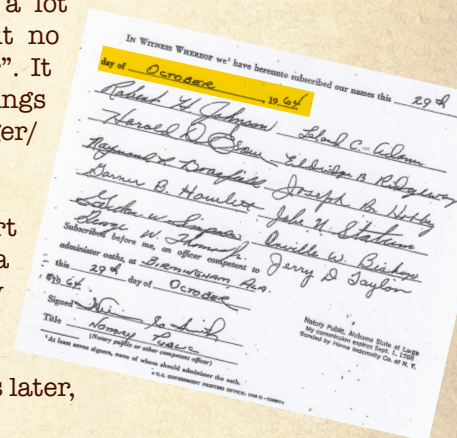 a lot
t no
”. It
ngs
ger/
rt
a
y
s later,
IN WITNESS WHEREOF we¹ have hereunto subscribed our names this 29th
day of OCTOBER, 1964
Robert H. Johnson Leland C. Adams
Harold D. Eldridge B. Ridgeway
Raymond L. Joseph B. Nobley
Garner B. Howlett John N. Statum
Gordon W. Simpson Orville W. Bishop
George W. Thomas Jr. Jerry D Taylor
Subscribed before me, an officer competent to
administer oaths, at BIRMINGHAM, ALA.
this 29th day of OCTOBER
1964
Signed Smith
Title NOTARY PUBLIC
(Notary public or other competent officer)
¹At least seven signers, none of whom should administer the oath.
U.S. GOVERNMENT PRINTING OFFICE:
Notary Public, Alabama State at Large
My commission expires Sept. 1, 1968
Bonded by Home Indemnity Co. of N. Y.